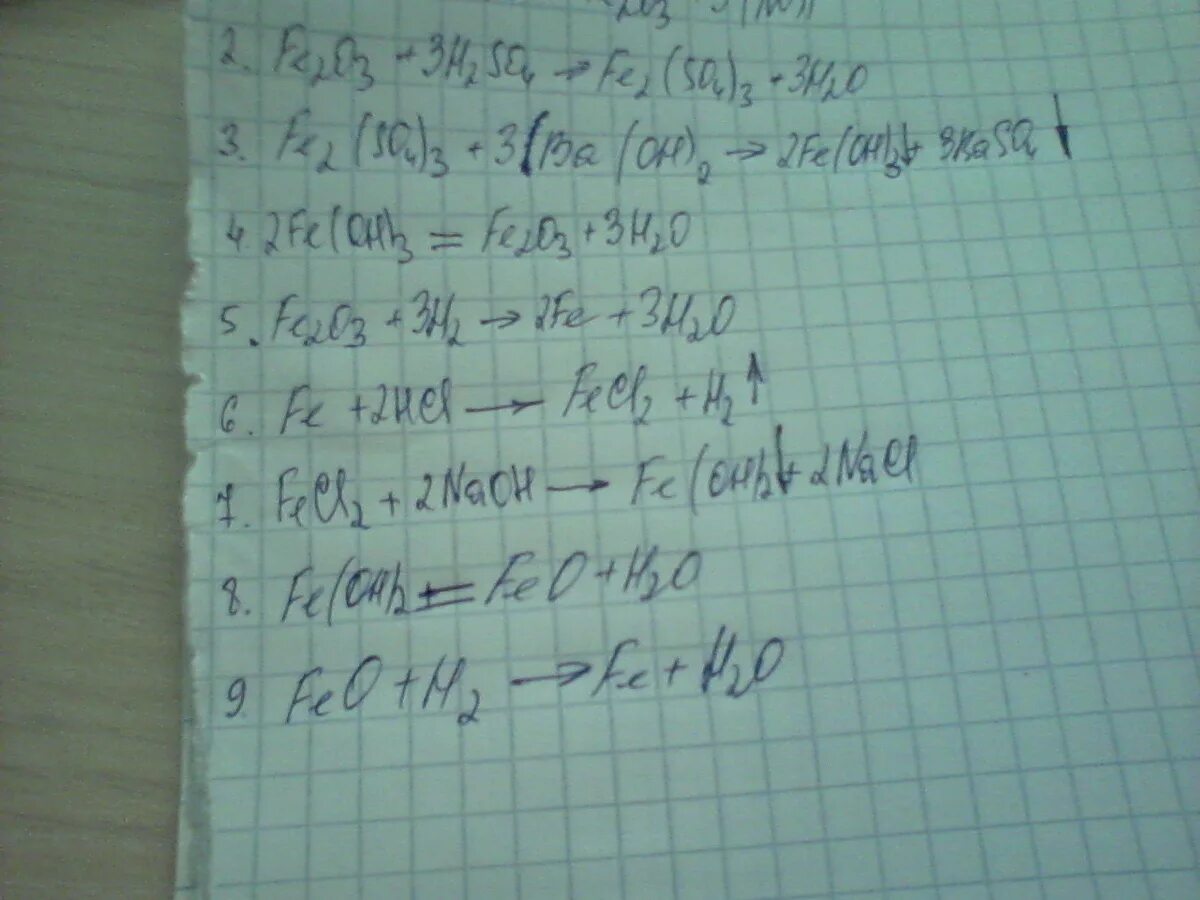 2. Fe₂O₃ + 3H₂SO₄ → Fe₂(SO₄)₃ + 3H₂O
3. Fe₂(SO₄)₃ + 3 Ba(OH)₂ → 2Fe(OH)₃↓ + 3BaSO₄ ↓
4. 2Fe(OH)₃ = Fe₂O₃ + 3H₂O
5. Fe₂O₃ + 3H₂ → 2Fe + 3H₂O
6. Fe + 2HCl → FeCl₂ + H₂↑
7. FeCl₂ + 2NaOH → Fe(OH)₂↓ + 2NaCl
8. Fe(OH)₂ = FeO + H₂O
9 FeO + H₂ → Fe + H₂O